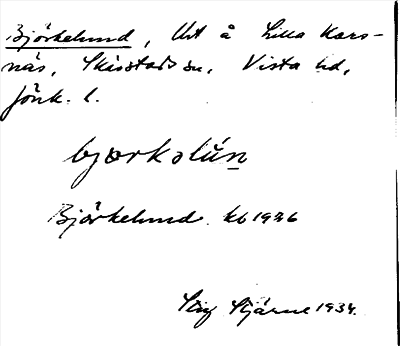 Björkelund, Utt å Lilla Kors-
näs, Skärstads sn, Vista hd,
Jönk. l.
bjœrkəlún
Björkelund kb 1926
Stig Stjärne 1934.